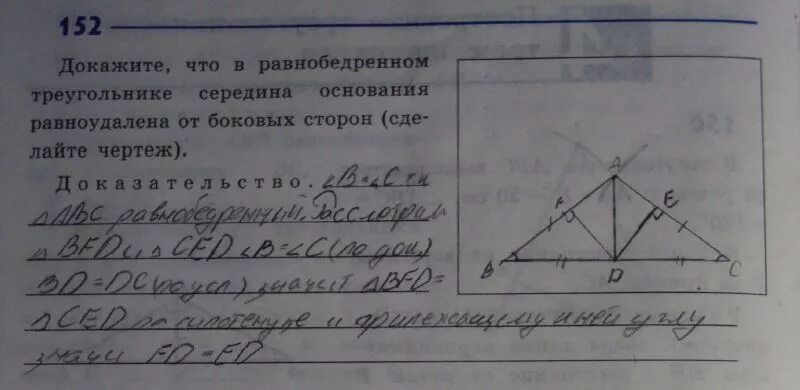 152
Докажите, что в равнобедренном
треугольнике середина основания
равноудалена от боковых сторон (сде-
лайте чертеж).
Доказательство. ∠B=∠C т.к
△ABC равнобедренный. Рассмотрим
△BFD и △CED ∠B=∠C (по док)
BD=DC (по усл) значит △BFD=
△CED по гипотенузе и прилежащему к ней углу
значи FD=ED
A
F
E
B
D
C